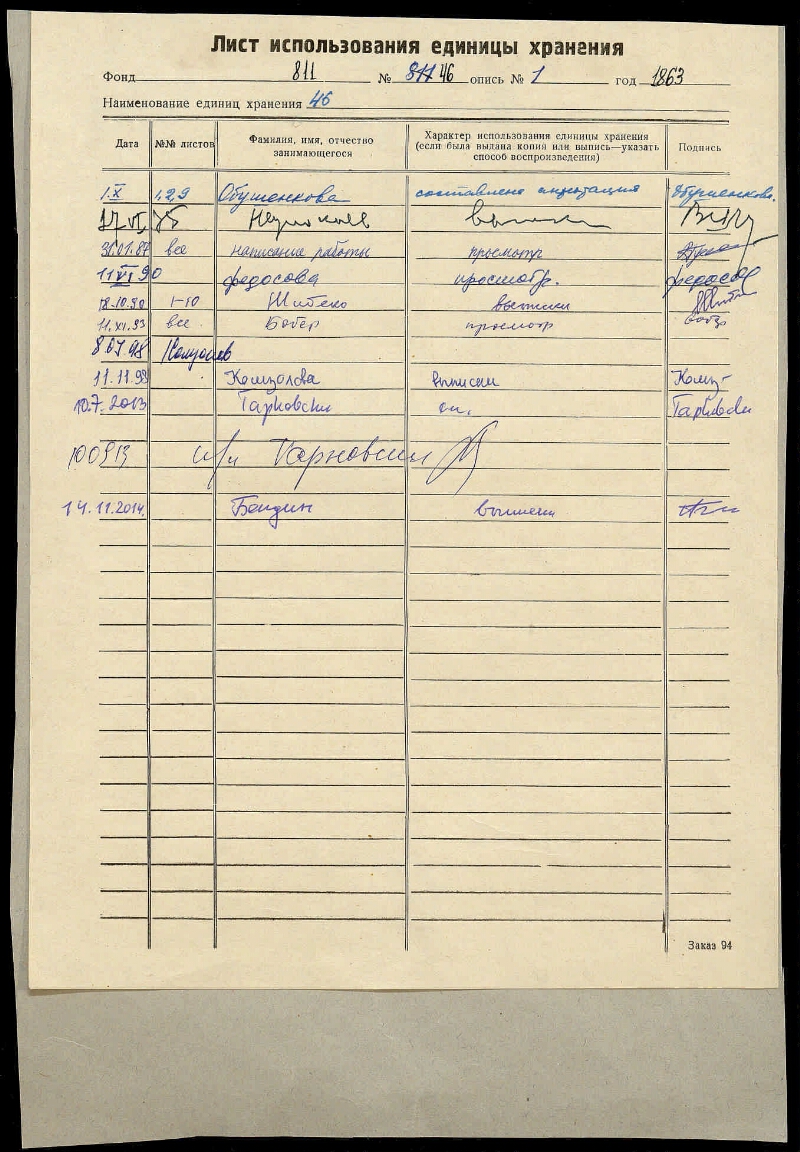 Лист использования единицы хранения
Фонд 811 № 811 46 опись № 1 год 1863
Наименование единиц хранения 46
Дата №№ листов Фамилия, имя, отчество занимающегося Характер использования единицы хранения (если была выдана копия или выпись—указать способ воспроизведения) Подпись
1.X 1,2,9 Обушенкова составлена аннотация Обушенкова.
17 VI 75
31.01.87 все написание работы просмотр
11 VI 90 Федосова просмотр. Федосов
18-10.90 1-10 Шибеко выписки
11.XI.93 все. Бобер просмотр
11.11.98 Комзолова выписки Комз-
10.7.2013 Тарновски
100913 Тарновски
14.11.2014. Бендин выписки
Заказ 94